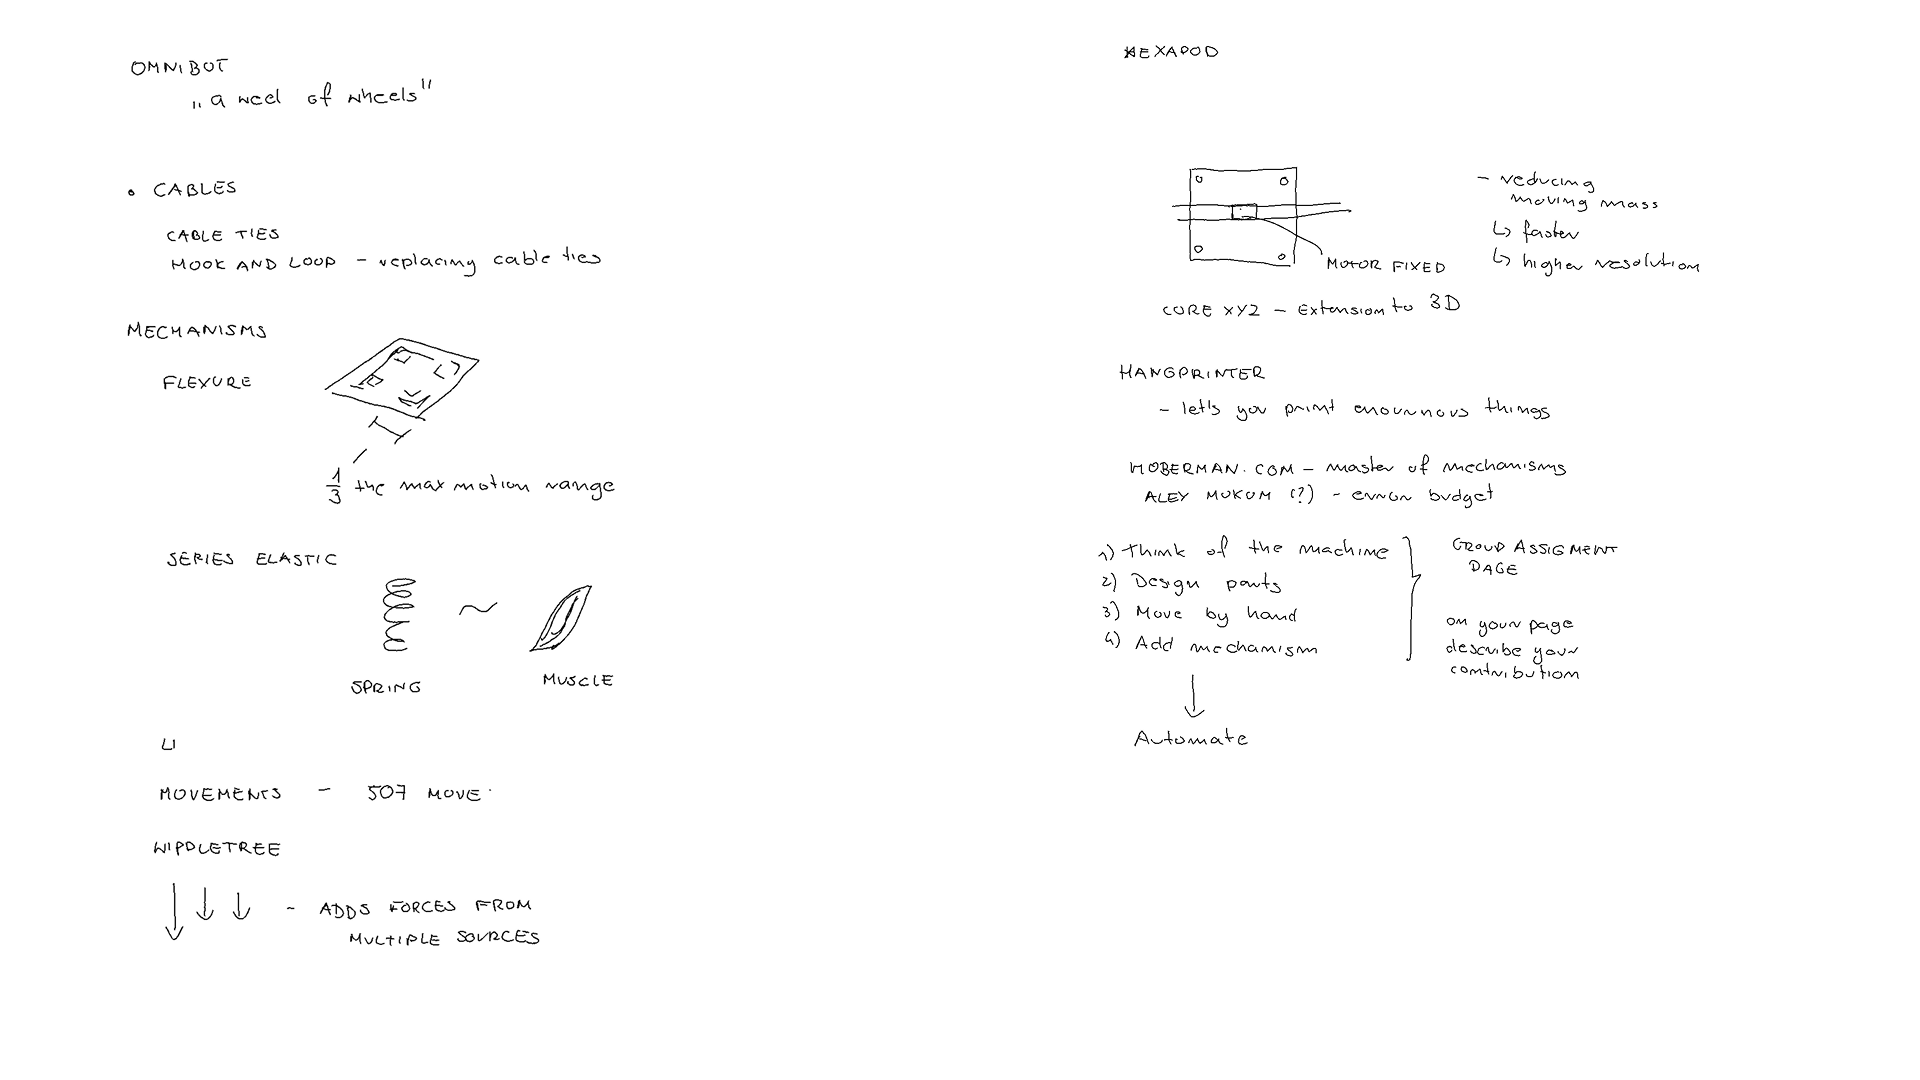 OMNIBOT
„a weel of wheels"
• CABLES
CABLE TIES
HOOK AND LOOP - replacing cable ties
MECHANISMS
FLEXURE
1/3 the max motion range
SERIES ELASTIC
~
SPRING
MUSCLE
MOVEMENTS - 507 MOVE.
WIPPLETREE
- ADDS FORCES FROM
MULTIPLE SOURCES
HEXAPOD
- reducing
moving mass
↳ faster
↳ higher resolution
MOTOR FIXED
CORE XYZ - Extension to 3D
HANGPRINTER
- let's you print enourmous things
HOBERMAN.COM - master of mechanisms
ALEY MOKUM (?) - error budget
1) Think of the machine
2) Design parts
3) Move by hand
4) Add mechanism
Automate
GROUP ASSIGMENT
PAGE
on your page
describe your
contribution